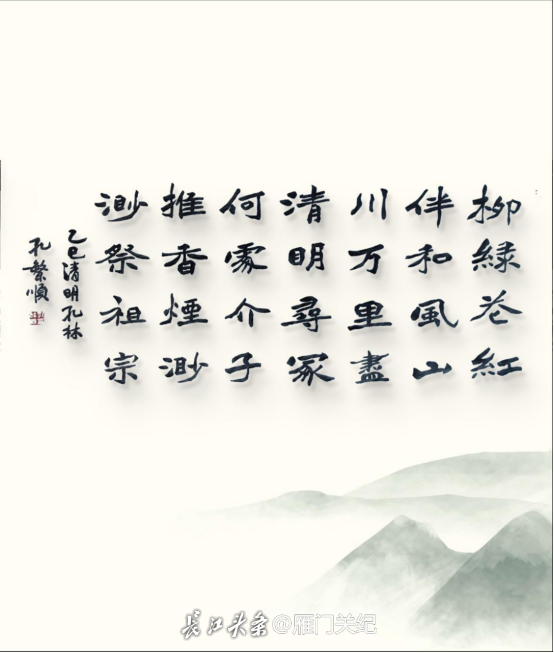 柳緑花紅
伴和風山
川万里盡
清明尋冢
何處介子
推香煙渺
渺祭祖宗
乙巳清明孔林
孔繁順
長江头条@雁门关纪